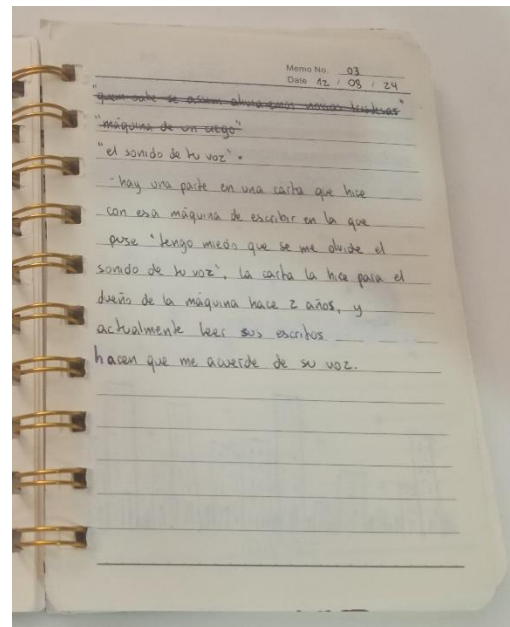 Memo No. 03
Date 12 / 08 / 24
"quem sabe se assim aliviaremos nossas tristesas"
"máquina de un ciego"
"el sonido de tu voz".
-hay una parte en una carta que hice
con esa máquina de escribir en la que
puse "tengo miedo que se me olvide el
sonido de tu voz", la carta la hice para el
dueño de la máquina hace 2 años, y
actualmente leer sus escritos
hacen que me acuerde de su voz.